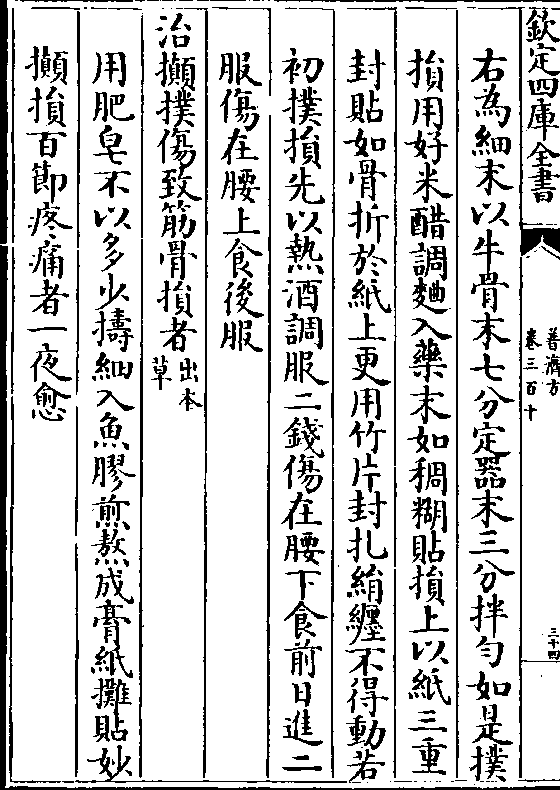 欽定四庫全書
普濟方
卷三百十
三十四
右為細末以牛骨末七分定器末三分拌勻如是撲
損用好米醋調麵入藥末如稠糊貼損上以紙三重
封貼如骨折於紙上更用竹片封扎絹纏不得動若
初撲損先以熱酒調服二錢傷在腰下食前日進二
服傷在腰上食後服
治攧撲傷致筋骨損者出本草
用肥皂不以多少擣細入魚膠煎熬成膏紙攤貼妙
攧損百節疼痛者一夜愈